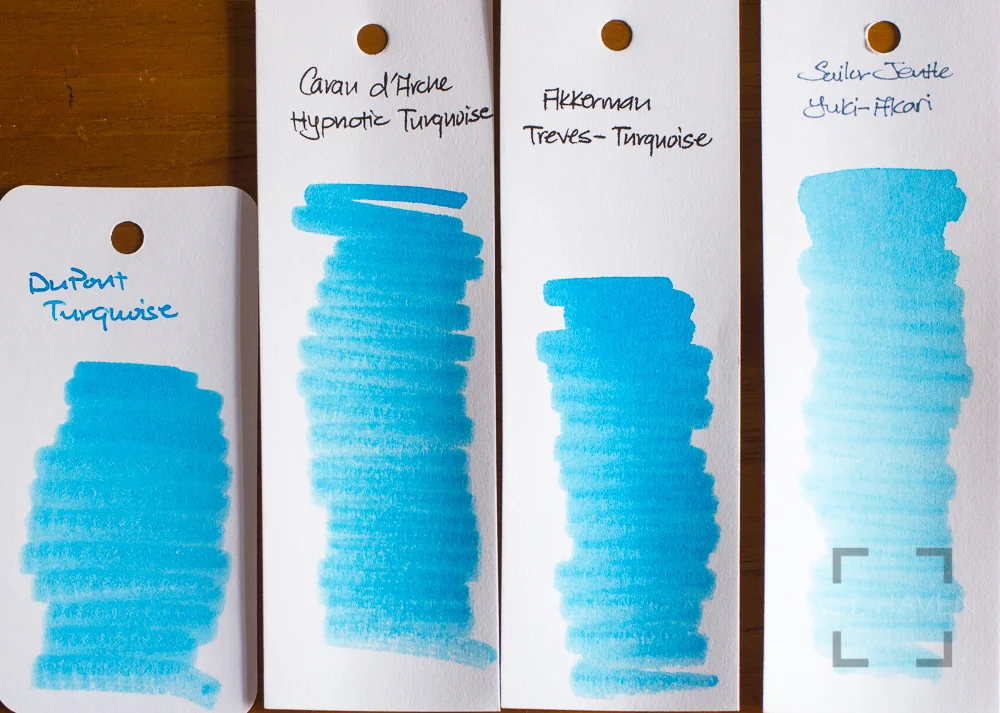 DuPont
Turquoise
Caran d'Arche
Hypnotic Turquoise
Akkerman
Treves-Turquoise
Sailor Jentle
Yuki-Akari
HAVEN